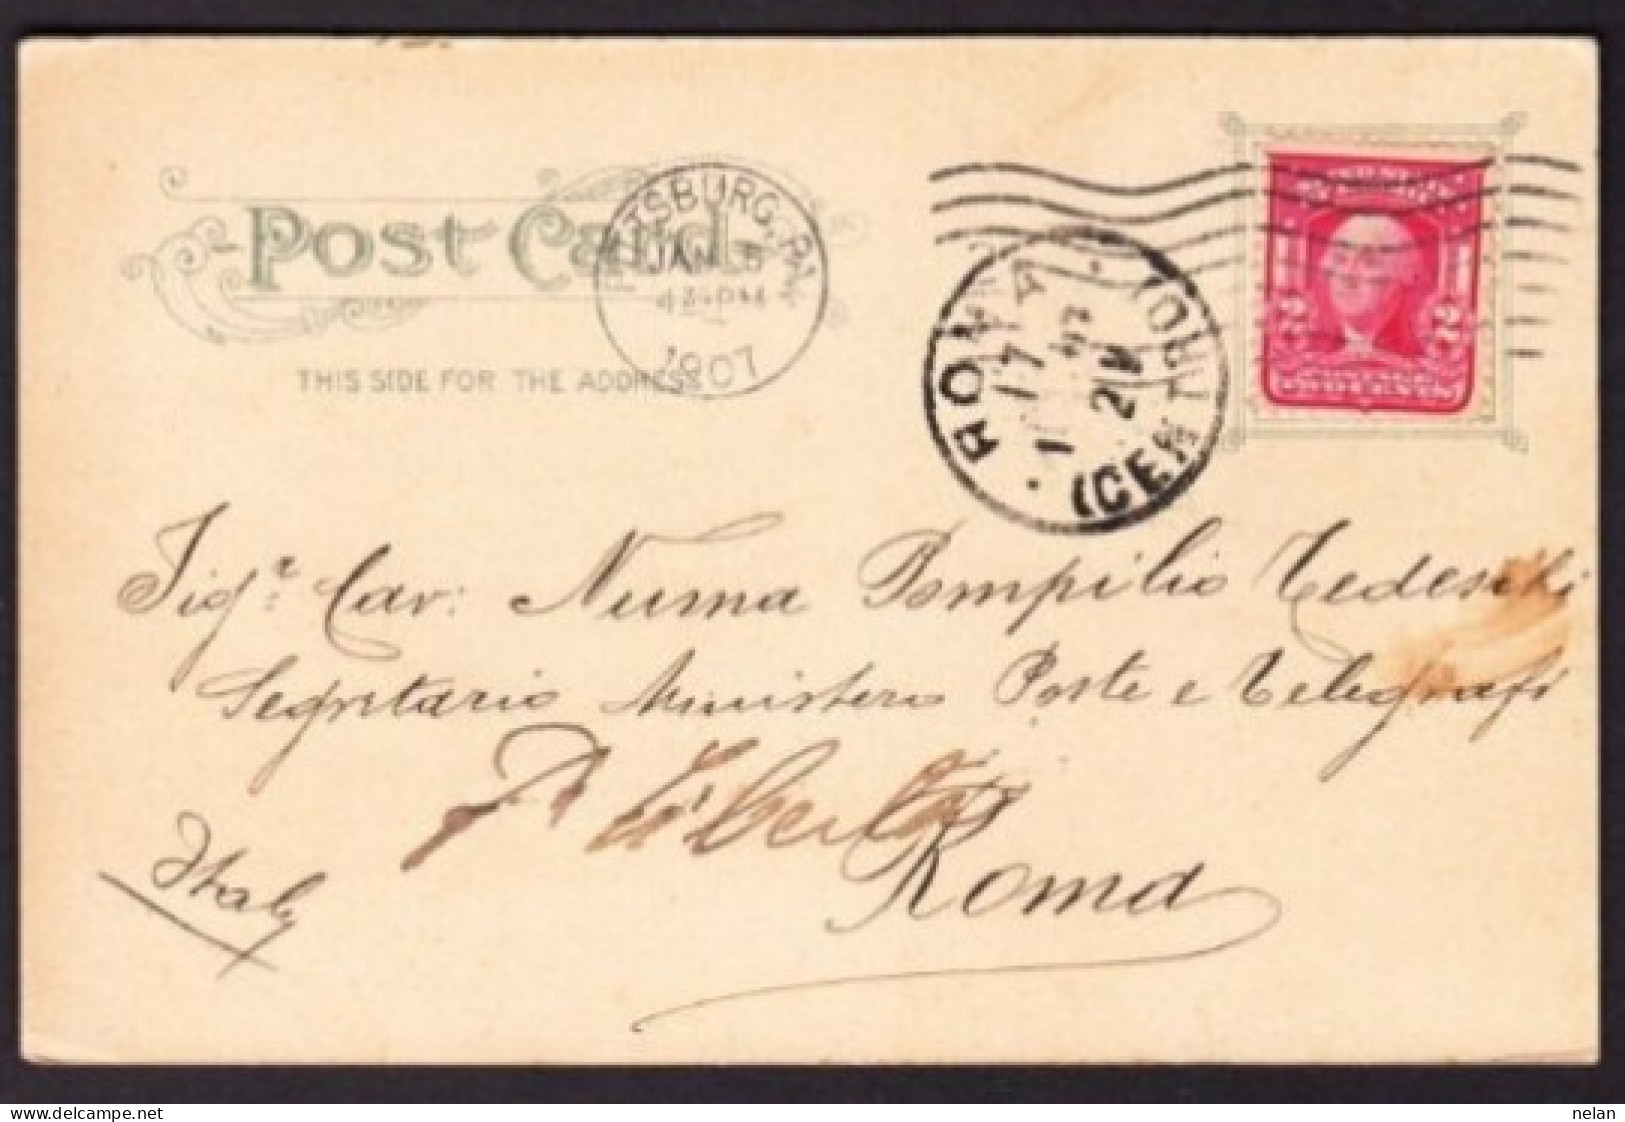 POST CARD
THIS SIDE FOR THE ADDRESS
PITTSBURG, PA.
JAN 5
4 30 PM
1907
ROMA
(CENTRO)
17
1
2
2 2
Sigr. Cav: Numa Pompilio Tedeschi
Segretario Ministero Poste e Telegrafi
Roma
Italy
www.delcampe.net
nelan